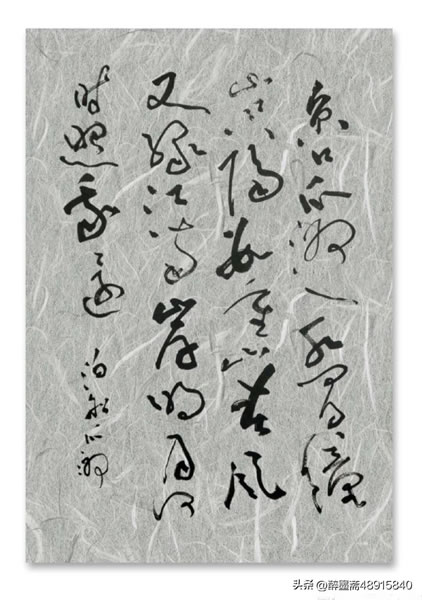 京口瓜洲一水间钟
山只隔数重山春风
又绿江南岸明月何
时照我还 泊船瓜洲
头条 @醉墨斋48915840